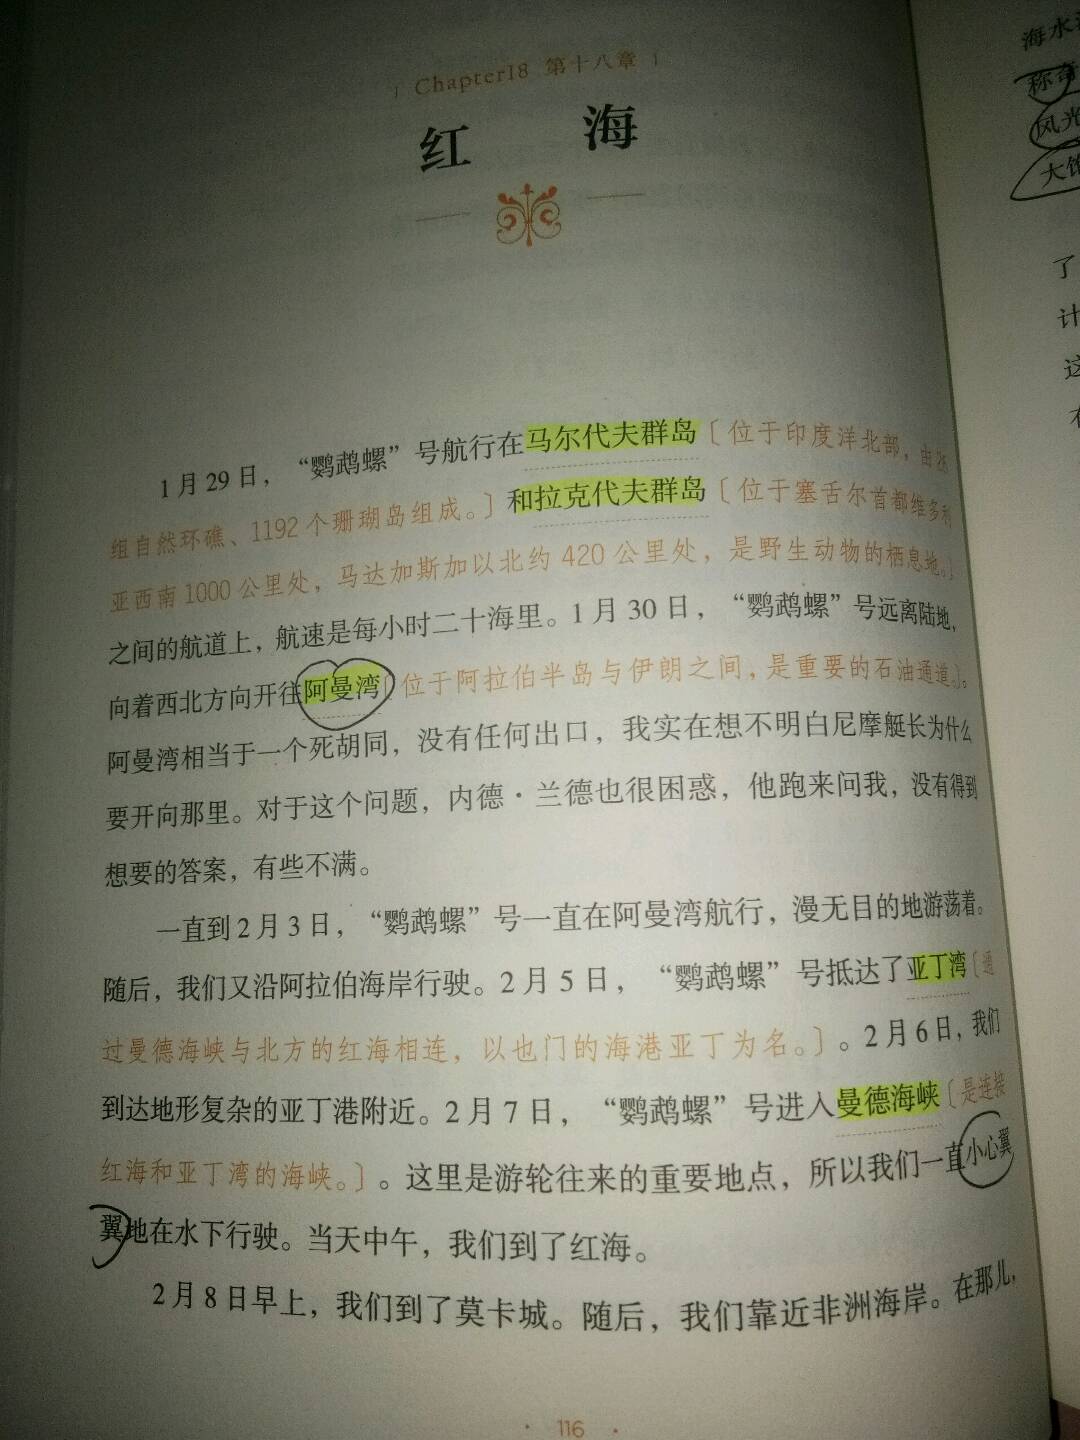 Chapter18 第十八章
红 海
1月29日，“鹦鹉螺”号航行在马尔代夫群岛〔位于印度洋北部，由26
组自然环礁、1192个珊瑚岛组成。〕和拉克代夫群岛〔位于塞舌尔首都维多利
亚西南1000公里处，马达加斯加以北约420公里处，是野生动物的栖息地。〕
之间的航道上，航速是每小时二十海里。1月30日，“鹦鹉螺”号远离陆地，
向着西北方向开往阿曼湾〔位于阿拉伯半岛与伊朗之间，是重要的石油通道。〕。
阿曼湾相当于一个死胡同，没有任何出口，我实在想不明白尼摩艇长为什么
要开向那里。对于这个问题，内德·兰德也很困惑，他跑来问我，没有得到
想要的答案，有些不满。
一直到2月3日，“鹦鹉螺”号一直在阿曼湾航行，漫无目的地游荡着。
随后，我们又沿阿拉伯海岸行驶。2月5日，“鹦鹉螺”号抵达了亚丁湾〔通
过曼德海峡与北方的红海相连，以也门的海港亚丁为名。〕。2月6日，我们
到达地形复杂的亚丁港附近。2月7日，“鹦鹉螺”号进入曼德海峡〔是连接
红海和亚丁湾的海峡。〕。这里是游轮往来的重要地点，所以我们一直小心翼
翼地在水下行驶。当天中午，我们到了红海。
2月8日早上，我们到了莫卡城。随后，我们靠近非洲海岸。在那儿，
· 116 ·
海水
称奇
风光
大饱
了
计
这